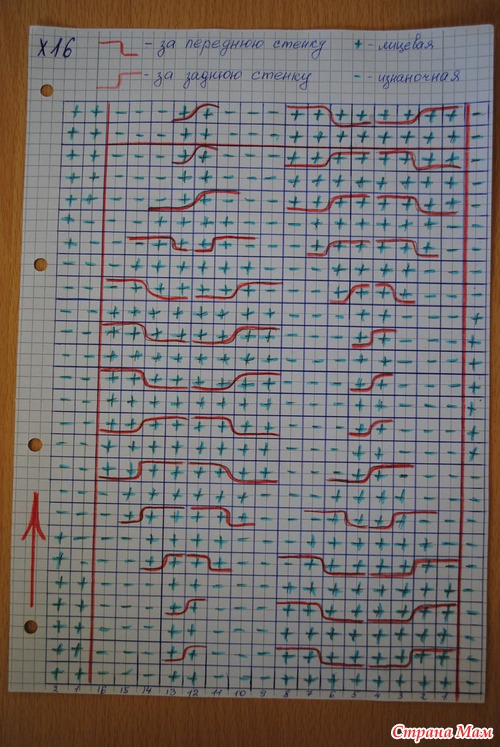 х16 - за переднюю стенку + - лицевая
- за заднюю стенку - - изнаночная
2 1 16 15 14 13 12 11 10 9 8 7 6 5 4 3 2 1
Страна Мам